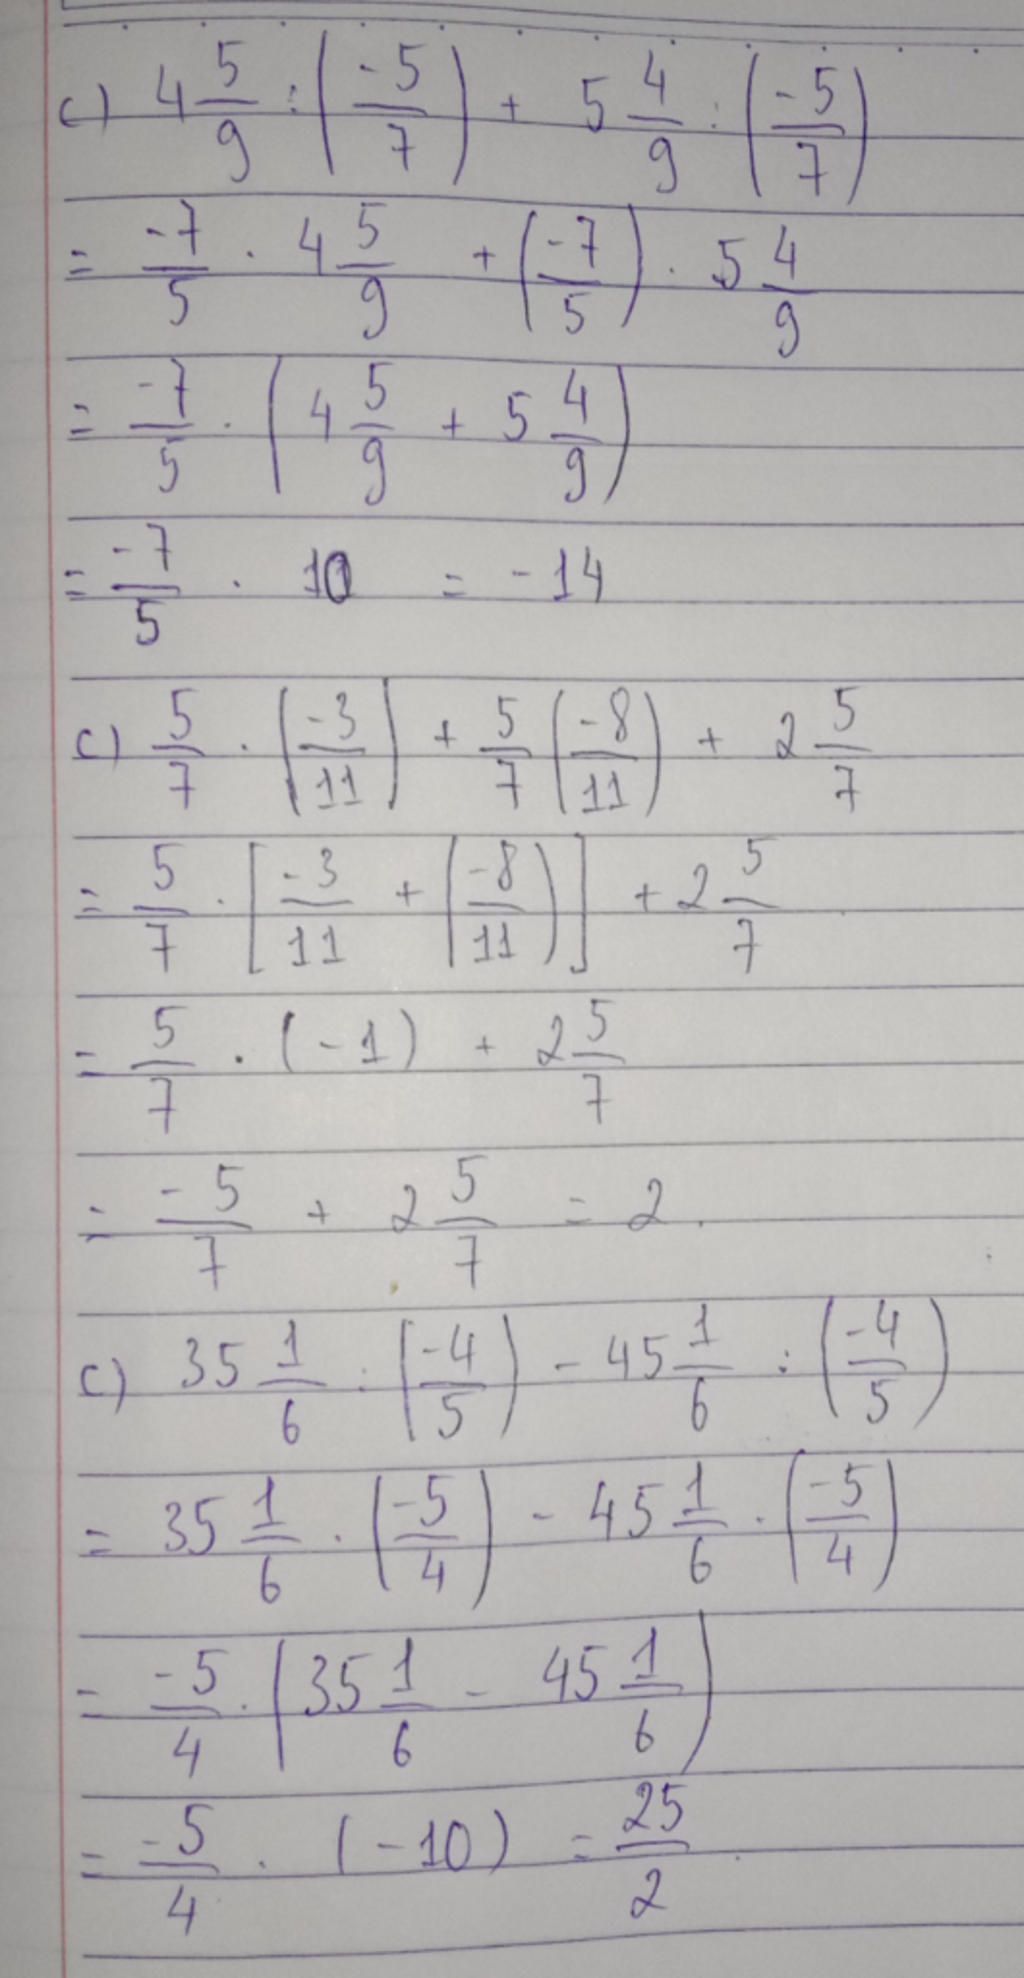 c) 4 5/9 : (-5/7) + 5 4/9 : (-5/7)
= -7/5 . 4 5/9 + (-7/5) . 5 4/9
= -7/5 . (4 5/9 + 5 4/9)
= -7/5 . 10 = -14
c) 5/7 . (-3/11) + 5/7 (-8/11) + 2 5/7
= 5/7 . [-3/11 + (-8/11)] + 2 5/7
= 5/7 . (-1) + 2 5/7
= -5/7 + 2 5/7 = 2.
c) 35 1/6 : (-4/5) - 45 1/6 : (-4/5)
= 35 1/6 . (-5/4) - 45 1/6 . (-5/4)
= -5/4 . (35 1/6 - 45 1/6)
= -5/4 . (-10) = 25/2.